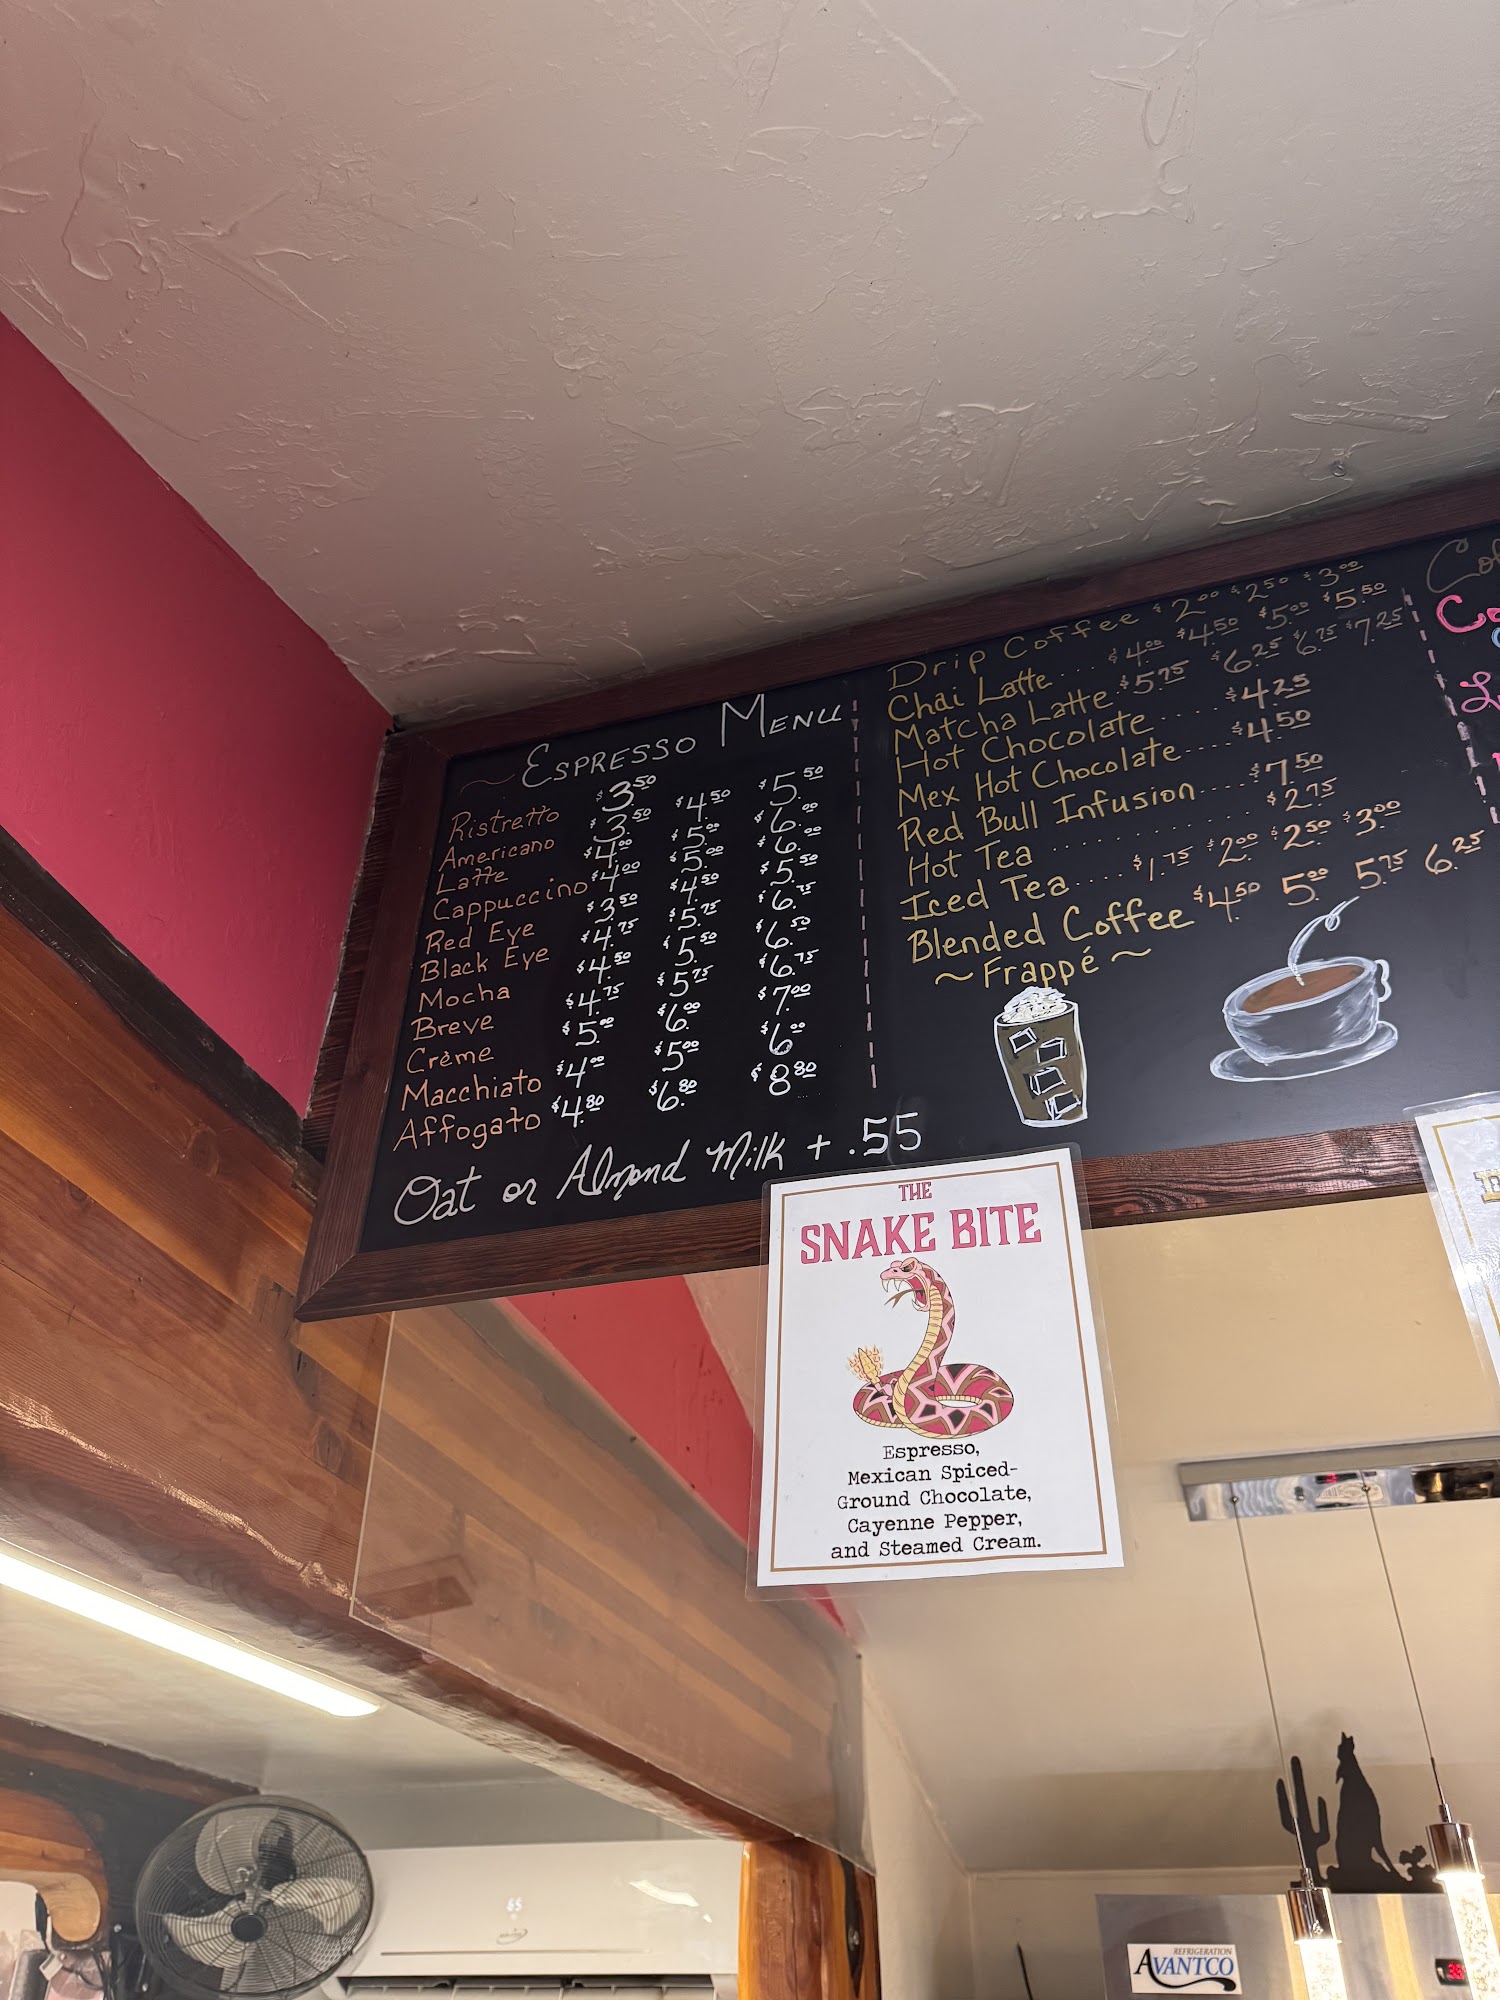 ~ Espresso Menu
Ristretto $3.50
Americano $3.50 $4.50 $5.50
Latte $4.00 $5.00 $6.00
Cappuccino $4.00 $5.00 $6.00
Red Eye $3.50 $4.50 $5.50
Black Eye $4.75 $5.75 $6.75
Mocha $4.50 $5.50 $6.50
Breve $4.75 $5.75 $6.75
Crème $5.00 $6.00 $7.00
Macchiato $4.00 $5.00 $6.00
Affogato $4.80 $6.80 $8.80
Oat or Almond Milk + .55
Drip Coffee $2.00 $2.50 $3.00
Chai Latte... $4.00 $4.50 $5.00 $5.50
Matcha Latte $5.75 $6.25 $6.75 $7.25
Hot Chocolate ..... $4.25
Mex Hot Chocolate.... $4.50
Red Bull Infusion.... $7.50
Hot Tea .......... $2.75
Iced Tea.... $1.75 $2.00 $2.50 $3.00
Blended Coffee $4.50 5.00 5.75 6.25
~ Frappé ~
THE
SNAKE BITE
Espresso,
Mexican Spiced-
Ground Chocolate,
Cayenne Pepper,
and Steamed Cream.
65
REFRIGERATION
AVANTCO